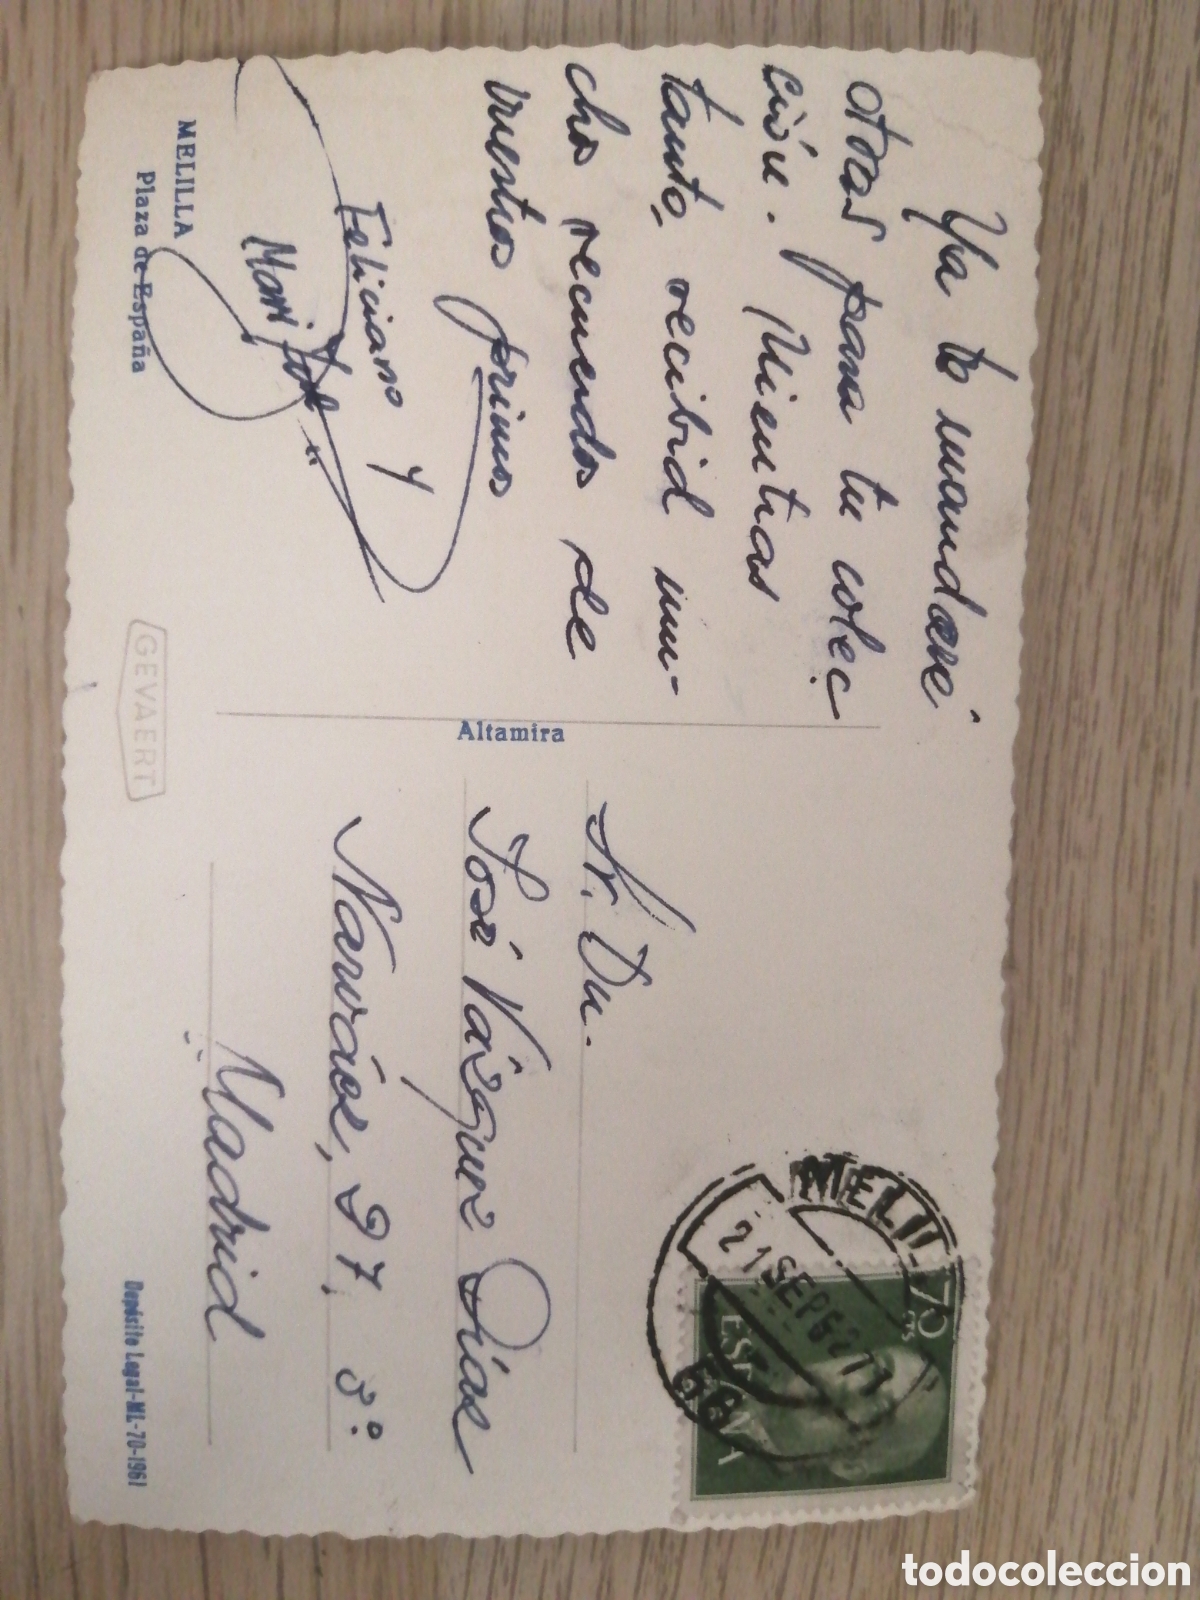 Ya te mandaré
otras para tu colec
ción. Mientras
tanto, recibid mu-
chos recuerdos de
vuestros primos
Feliciano y
Mari
MELILLA
Plaza de España
GEVAERT
Altamira
Sr. Dn.
José Vázquez Díaz
Narváez, 97, 3º.
Madrid
Depósito Legal-ML-70-1961
MELILLA
21 SEP 62
70 CTS
ESPAÑA
todocoleccion